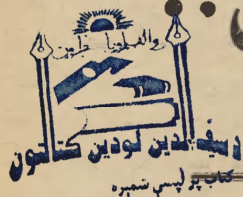 والقلم وما يسطرون
د سیف الدین لودین کتابتون
کتاب پر لپسې شمېره